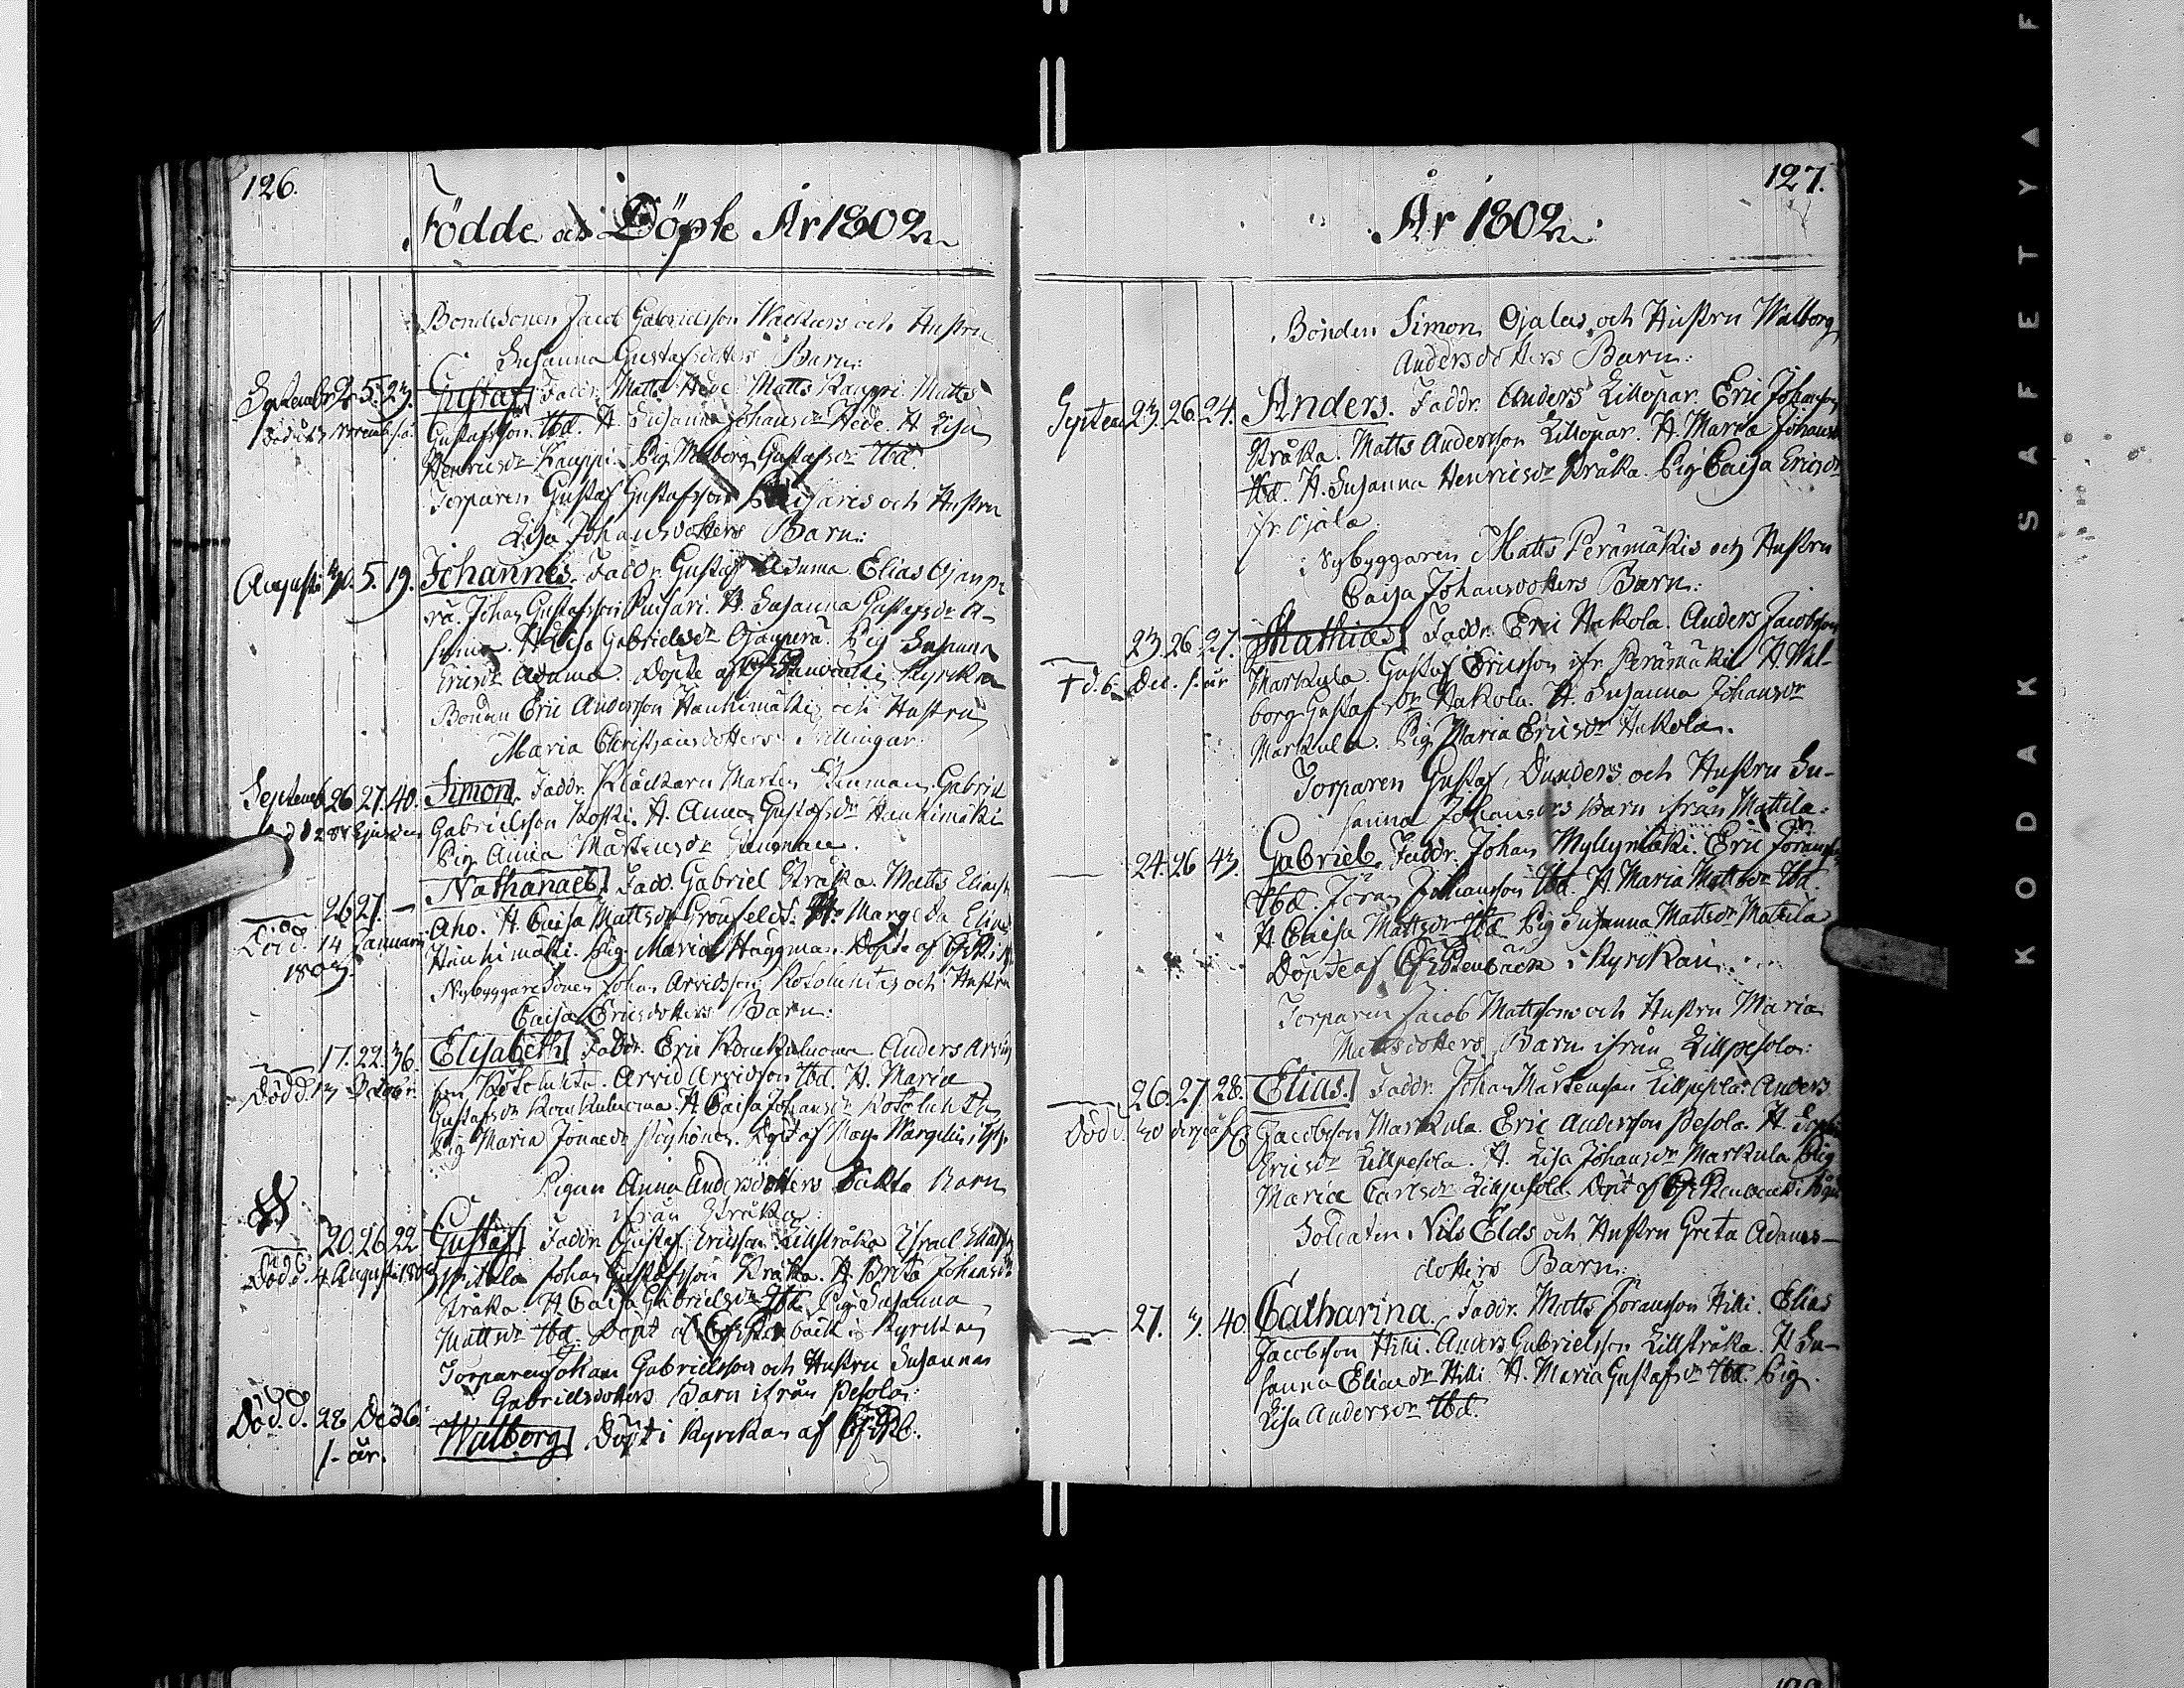 126.
Födde och Döpte År 1802
Bondesonen Jacob Gabrielsson Wackurs och Hustru
Susanna Gustafsdotters Barn:
Septembr 2. 5. 23. Gustaf Faddr. Matts Hede Matts Kauppi Matts
Död d. 13 Novemb. s. å. Gustafsson Ibd. H. Susanna Johansdr Hede. H. Lisa
Henricsdr Kauppi. Pig. Walborg Gustafsdr Ibd.
Torparen Gustaf Gustafsson och Hustru
Lisa Johansdotters Barn:
Augusti 30. 5. 19. Johannes. Faddr. Gustaf Aduma. Elias Ojanpe
rä. Johan Gustafsson Puisari. H. Susanna Gustafsdr A-
H Lisa Gabrielsdr Ojanperä. Pig Susanna
Ericsdr Aduma. Döpte af i Kyrkan
Bonden Eric Andersson Hankimäkis och Hustru
Maria Christjansdotters Tvillingar:
Septemb 26 27. 40. Simon Faddr. Klåckaren Mårten Gabriel
d 28 Ejusdem Gabrielsson Koski. H. Anna Gustafsdr Hankimäki
Pig. Anna Mårtensdr
26 27. — Nathanael. Fadd. Gabriel Kråka. Matts Eliass.
Död. 14 Januarii Aho. H. Caisa Mattsdr Grönfeldt. H. Margeta Elias
1803. Hankimäki. Pig. Maria Häggman. Döpte af
Nybyggaresonen Johan Arvidsson Kotoluhtas och Hustru
Caisa Ericsdotters Barn:
17. 22. 36. Elisabeth Faddr. Eric Anders Arvids
Död d. 13 Octobr. son Kotoluhta. Arvid Arvidsson Ibd. H. Maria
Gustafsdr H Caisa Johansdr Kotoluhta
Pig Maria Jönaedr Döpt af Mag. Wargelin
Pigan Anna Andersdotters Barn
ifrån Kråka:
20. 26 22. Gustaf Faddr. Gustaf Ericsson Lillkråka Israel
Död d. 4 Augusti Johan Gustafsson Kråka. H. Brita Johansdr
Kråka. H Caisa Gabrielsdr Ibd. Pig. Susanna
Mattsdr Ibd. Döpt af i Kyrkan
Torparen Johan Gabrielsson och Hustru Susannas
Gabrielsdotters Barn ifrån Pesola:
Död d. 28 Dec Walborg Döpt i Kyrkan af
1. år.
127.
År 1802
Bonden Simon Ojalas och Hustru Walborg
Andersdotters Barn:
Septem 23. 26. 24. Anders. Faddr. Anders Lillopar. Eric Johansson
Kråka. Matts Andersson Lillopar. H. Maria Johansdr
Ibd. H. Susanna Henricsdr Kråka. Pig Caisa Ericsdr
ifr. Ojala.
Nybyggaren Matts Perämäkis och Hustru
Caisa Johansdotters Barn:
23. 26 27. Mathias Faddr. Eric Hakola. Anders Jacobsson
† d. 6 Dec. 1. år Markula. Gustaf Ericsson ifr. Perämäki H. Wal-
borg Gustafsdr Hakola. H. Susanna Johansdr
Markula. Pig Maria Ericsdr Hakola.
Torparen Gustaf Dunders och Hustru Su-
sanna Johansdrs Barn ifrån Mattila:
24. 26 43. Gabriel. Faddr. Johan Myllymäki. Eric Jöransson
Ibd. Jöran Johansson Ibd. H. Maria Mattsdr Ibd.
H. Caisa Mattsdr Ibd. Pig Susanna Mattsdr Mattila
Döpte af i Kyrkan.
Torparen Jacob Mattssons och Hustru Maria
Mattsdotters Barn ifrån Lillpesola:
26. 27. 28. Elias. Faddr. Johan Mårtensson Lillpesola. Anders
Död d. 30 Jacobsson Markula. Eric Andersson Pesola. H. Sophia
Ericsdr Lillpesola. H. Lisa Johansdr Markula Pig
Maria Carlsdr Lillpesola Döpt af
Soldaten Nils Elds och Hustru Greta Adams-
dotters Barn:
27. 3. 40. Catharina. Faddr. Matts Jöransson Hilli. Elias
Jacobsson Hilli. Anders Gabrielsson Lillkråka. H Su-
sanna Eliaedr Hilli. H. Maria Gustafsdr Ibd. Pig.
Lisa Andersdr Ibd.
KODAK SAFETY F